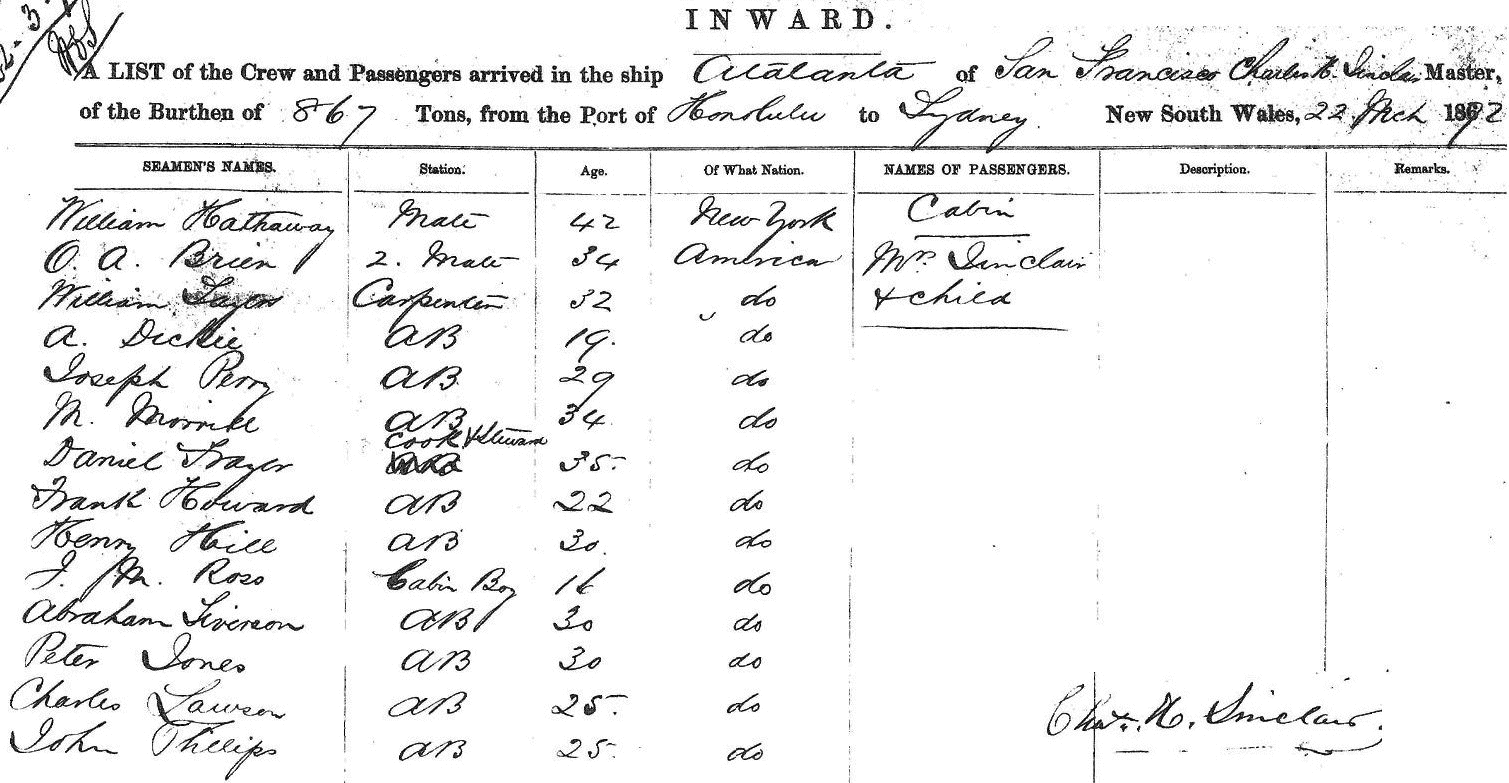 INWARD.
A LIST of the Crew and Passengers arrived in the ship Atalanta of San Francisco Charles H. Sinclair Master,
of the Burthen of 867 Tons, from the Port of Honolulu to Sydney New South Wales, 22 Mch 1872
SEAMEN'S NAMES. Station. Age. Of What Nation. NAMES OF PASSENGERS. Description. Remarks.
William Hathaway Mate 42 New York Cabin
O. A. Brien 2. Mate 34 America Mrs Sinclair
William Carpenter 32 do + child
A. Dickie AB 19. do
Joseph Perry AB 29 do
M. Morrill AB 34 do
Daniel Frazer Cook & Steward 35 do
Frank Howard AB 22 do
Henry Hill AB 30. do
J. M. Ross Cabin Boy 16 do
Abraham Siverson AB 30 do
Peter Jones AB 30 do
Charles Lawson AB 25. do
John Phillips AB 25. do
Chas. H. Sinclair.